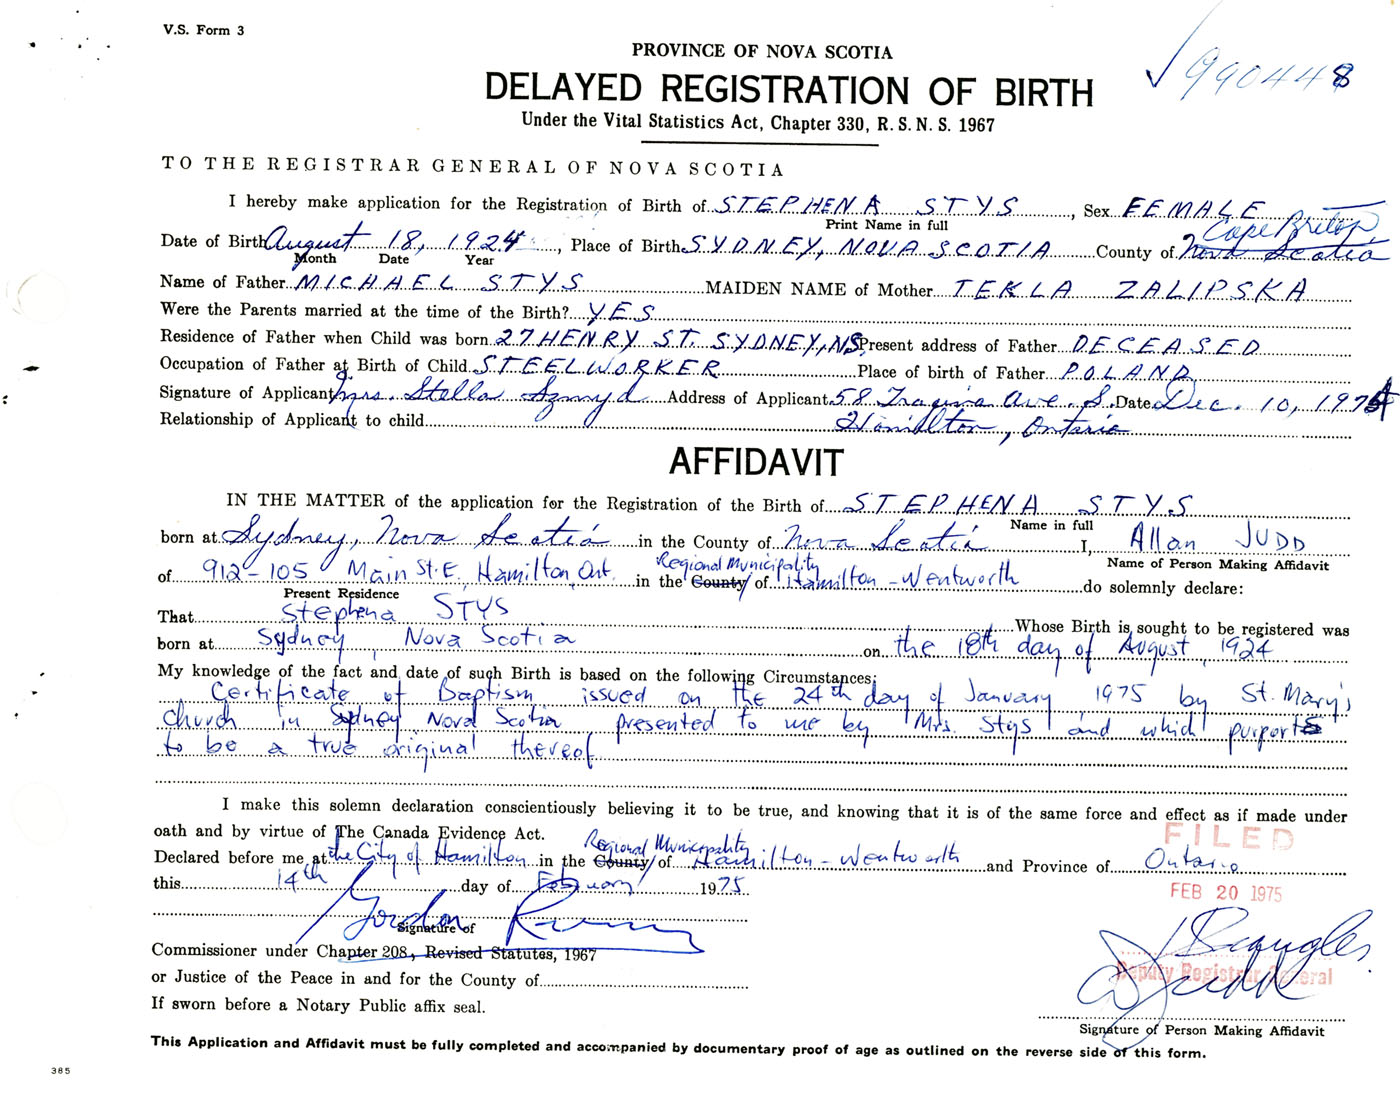 V.S. Form 3
PROVINCE OF NOVA SCOTIA
9904448
DELAYED REGISTRATION OF BIRTH
Under the Vital Statistics Act, Chapter 330, R. S. N. S. 1967
TO THE REGISTRAR GENERAL OF NOVA SCOTIA
I hereby make application for the Registration of Birth of STEPHENA STYS, Sex FEMALE
Print Name in full
Cape Breton
Date of Birth August 18, 1924, Place of Birth SYDNEY, NOVA SCOTIA County of Nova Scotia
Month Date Year
Name of Father MICHAEL STYS MAIDEN NAME of Mother TEKLA ZALIPSKA
Were the Parents married at the time of the Birth? YES
Residence of Father when Child was born 27 HENRY ST. SYDNEY, NS Present address of Father DECEASED
Occupation of Father at Birth of Child STEELWORKER Place of birth of Father POLAND
Signature of Applicant Mrs. Stella Szmyd Address of Applicant 58 Ave. S. Date Dec. 10, 1974
Relationship of Applicant to child Hamilton, Ontario
AFFIDAVIT
IN THE MATTER of the application for the Registration of the Birth of STEPHENA STYS
Name in full
born at Sydney, Nova Scotia in the County of Nova Scotia I, Allan JUDD
Name of Person Making Affidavit
Regional Municipality
of 912-105 Main St. E, Hamilton, Ont. in the County of Hamilton-Wentworth do solemnly declare:
Present Residence
That Stephena STYS Whose Birth is sought to be registered was
born at Sydney, Nova Scotia on the 18th day of August, 1924
My knowledge of the fact and date of such Birth is based on the following Circumstances:
Certificate of Baptism issued on the 24th day of January, 1975 by St. Mary's
church in Sydney Nova Scotia presented to me by Mrs. Stys and which purports
to be a true original thereof
I make this solemn declaration conscientiously believing it to be true, and knowing that it is of the same force and effect as if made under
oath and by virtue of The Canada Evidence Act.
FILED
Regional Municipality
Declared before me at the City of Hamilton in the County of Hamilton-Wentworth and Province of Ontario
this 14th day of February 1975
FEB 20 1975
Gordon
Signature of
Commissioner under Chapter 208, Revised Statutes, 1967
Deputy Registrar General
or Justice of the Peace in and for the County of
If sworn before a Notary Public affix seal.
Signature of Person Making Affidavit
This Application and Affidavit must be fully completed and accompanied by documentary proof of age as outlined on the reverse side of this form.
385